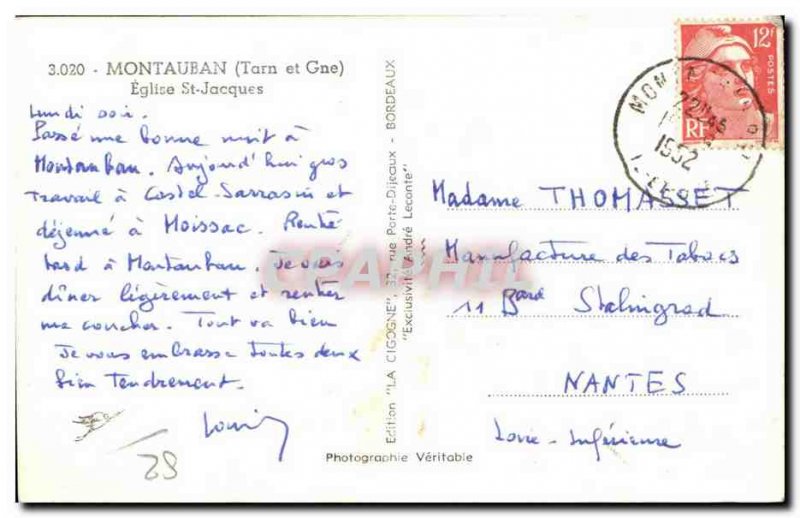 3.020 - MONTAUBAN (Tarn et Gne)
Église St-Jacques
Lundi soir.
Passé une bonne nuit à
Montauban. Aujourd'hui gros
travail à Castel-Sarrasin et
déjeuné à Moissac. Rentré
tard à Montauban. Je vais
dîner légèrement et rentrer
me coucher. Tout va bien
Je vous embrasse toutes deux
bien tendrement.
Louis
28
Edition "LA CIGOGNE", 32, rue Porte-Dijeaux - BORDEAUX
"Exclusivité André Leconte"
Photographie Véritable
12F
POSTES
RF
1952
Madame THOMASSET
Manufacture des Tabacs
11 Bard Stalingrad
NANTES
Loire-Inférieure
CPAPHIL